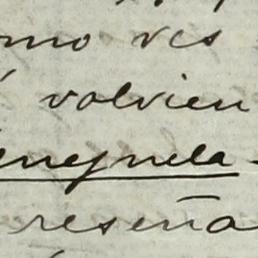 omo ves
volvien
enezuela-
reseña